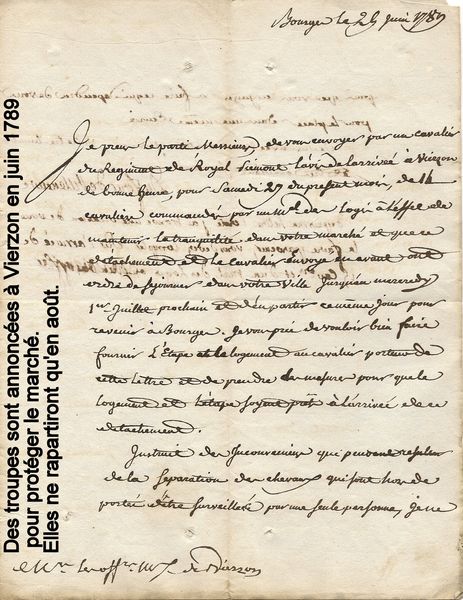 Des troupes sont annoncées à Vierzon en juin 1789
pour protéger le marché.
Elles ne rapartiront qu'en août.
Bourges le 25 juin 1789
Je prens le parti Messieurs, de vous envoyer par un cavalier
du Regiment de Royal Piemont l'avis de l'arrivée a Vierzon
de bonne heure pour Samedi 27 du present mois, de 14
cavaliers commandés par un Mal. des Logis à l'effet de
maintenir la tranquilité dans votre marché et que ce
detachement et le cavalier envoyé en avant ont
ordre de sejourner dans votre Ville jusqu'au mercredy
1er Juillet prochain et d'en partir ce même jour pour
revenir à Bourges. Je vous prie de vouloir bien faire
fournir l'Etape et le logement au cavalier porteur de
cette lettre et de prendre des mesures pour que le
logement et l'étape soyent prêts à l'arrivée de ce
detachement.
Instruit des Inconveniens qui peuvent resulter
de la Separation des chevaux qui sont hors de
portée d'être surveillés par une seule personne, je ne
Mrs. les offrs. Mx. de Vierzon